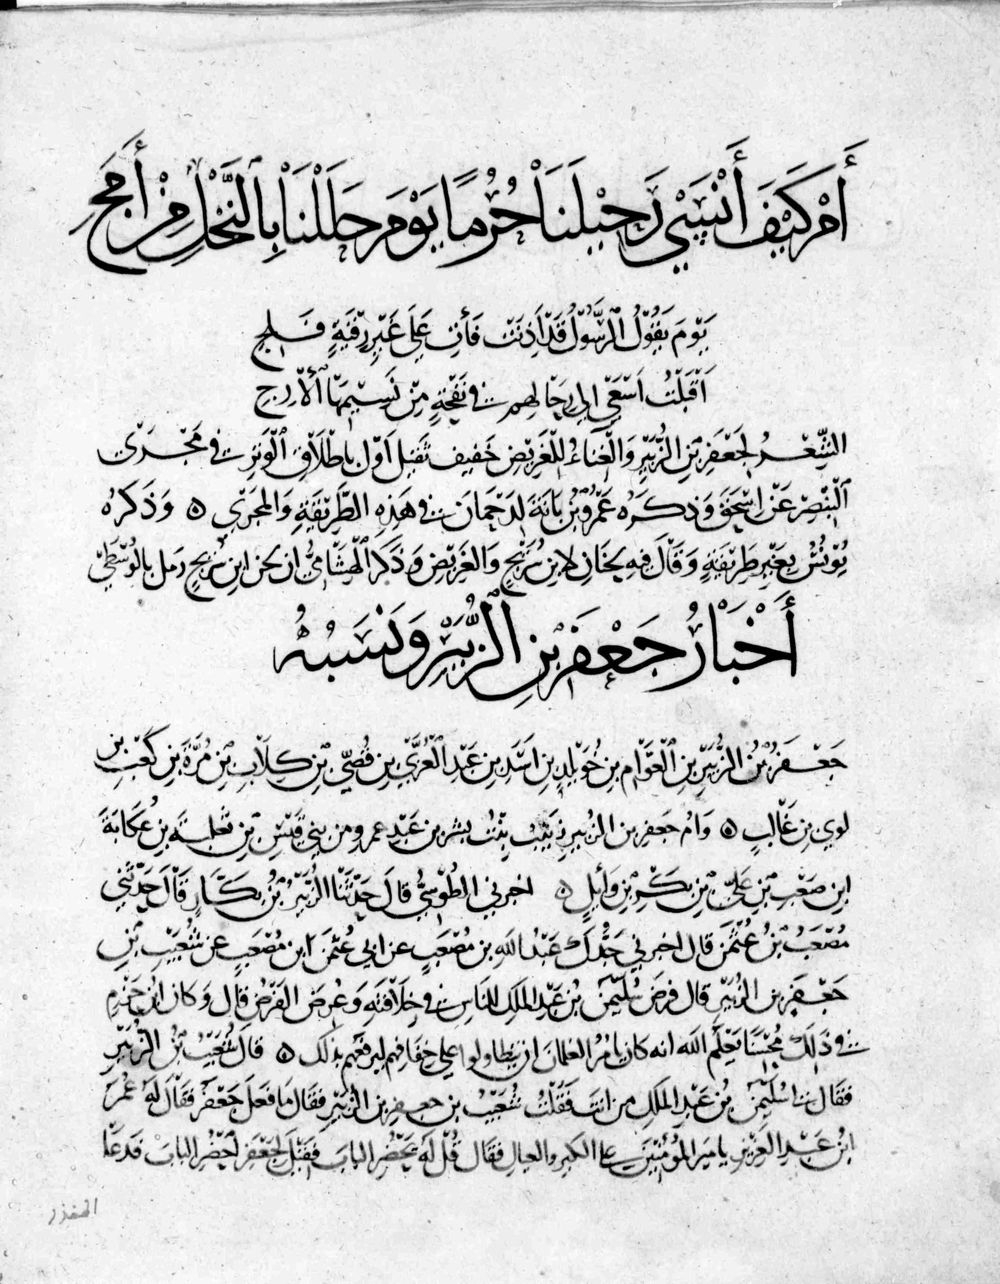 أَمْ كَيْفَ أَنْسَىٰ رَحِيْلَنَا حُرُمًا يَوْمَ حَلَلْنَا بِالنَّخْلِ مِنْ أَمَجِ
يَوْمَ يَقُوْلُ الرَّسُوْلُ قَدْ أَذِنَتْ فَأْتِ عَلَى غَيْرِ رِقْبَةٍ فَلِجِ
أَقْبَلْتُ أَسْعَى إِلَى رِحَالِهِمِ في نَفْحَةٍ مِنْ نَسِيْمِهَا الْأَرِجِ
الشِّعْرُ لجَعْفَرِ بْنِ الزُّبَيْرِ وَالْغِنَاءُ لِلْغَرِيْضِ خَفِيف ثَقيل أَوَّل بِإطْلَاقِ الْوَتَرِ في مَجْرَى
الْبِنْصِرِ عَنْ إِسْحَقَ وَذكَرَه عَمْرُو بْنُ بَانَةَ لِدَحْمَانَ في هَذِهِ الطَّرِيْقَةِ وَالمجرَى ه وَذَكَرَهُ
يُوْنُسُ بِغَيْرِ طَرِيْقَةٍ وَقَالَ فِيهِ لحنَانِ لابْنِ سُرَيْجٍ وَالغَرِيْضِ وَذَكَرَ الْهِشَامِيُّ ان لحن ابْنِ سُرَيْجٍ رمل بالوُسْطَى
أَخْبَارُ جَعْفَرِ بْنِ الزُّبَيْرِ وَنَسَبُهُ
جَعْفَرُ بْنُ الزُّبَيْرِ بنِ الْعَوَّام بنِ خُوَيْلِدِ بنِ اَسَدِ بنِ عَبْدِ الْعُزَّى بنِ قُصَيِّ بْنِ كِلَابِ بْنِ مُرَّةَ بنِ كَعْبِ بنِ
لوي بنِ غَالِبٍ ه وَام جعفرِ بنِ الزبيرِ زَيْنَبُ بِنْتُ بشر بن عَبْدِ عمرو من بَني قَيْسِ بْنِ ثعلبَةَ بنِ عُكَابَةَ
ابن صَعْبِ بْنِ عَلِيِّ بْنِ بَكْرِ بْنِ وَايِلٍ ه اخبرني الطُوْسِيُّ قالَ حَدَّثَنَا الزُّبَيْرُ بْنُ بَكَّارٍ قَالَ حَدَّثَنِي
مُصْعَبُ بْنُ عُثْمَنَ قال اخبرني جَدُّكَ عَبْدُ اللّٰهِ بن مُصْعَبٍ عن ابي عُثْمَنَ ابن مُصْعَبٍ عن شُعَيْبِ بْنِ
جَعْفَرِ بنِ الزُّبَيْرِ قالَ فرَضَ سُلَيْمَنُ بْنُ عَبْدِ المَلِكِ للنَاسِ في خِلَافَتِهِ وَعُرِضَ الفَرْضُ قالَ وَكان ابن حَزْمٍ
في ذَلِكَ مُحْسِنًا يَعْلَم اللّٰه انه كان يَامُرُ الغلمانَ ان يتطاولوا على خِفَافِهم ليرفعهم بذلكَ ه قالَ شُعَيْبُ بْنُ الزُّبَيْرِ
فقالَ لي سُلَيْمَنُ بْنُ عَبْدِ المَلِكِ من انتَ فَقُلْتُ شُعَيْبُ بن جعفرِ بن الزُّبَيْرِ فقَالَ مَا فعَلَ جَعْفَر فَقَالَ لَهُ عُمَرُ
ابنُ عَبْدِ العَزِيزِ يا اميرَ المُؤْمنيْنَ على الكبر والعيال فقالَ قُلْ لَه يَحْضُر البابَ فقيل لجَعْفَر احضُرِ البابَ فَدَعَا
المنذر